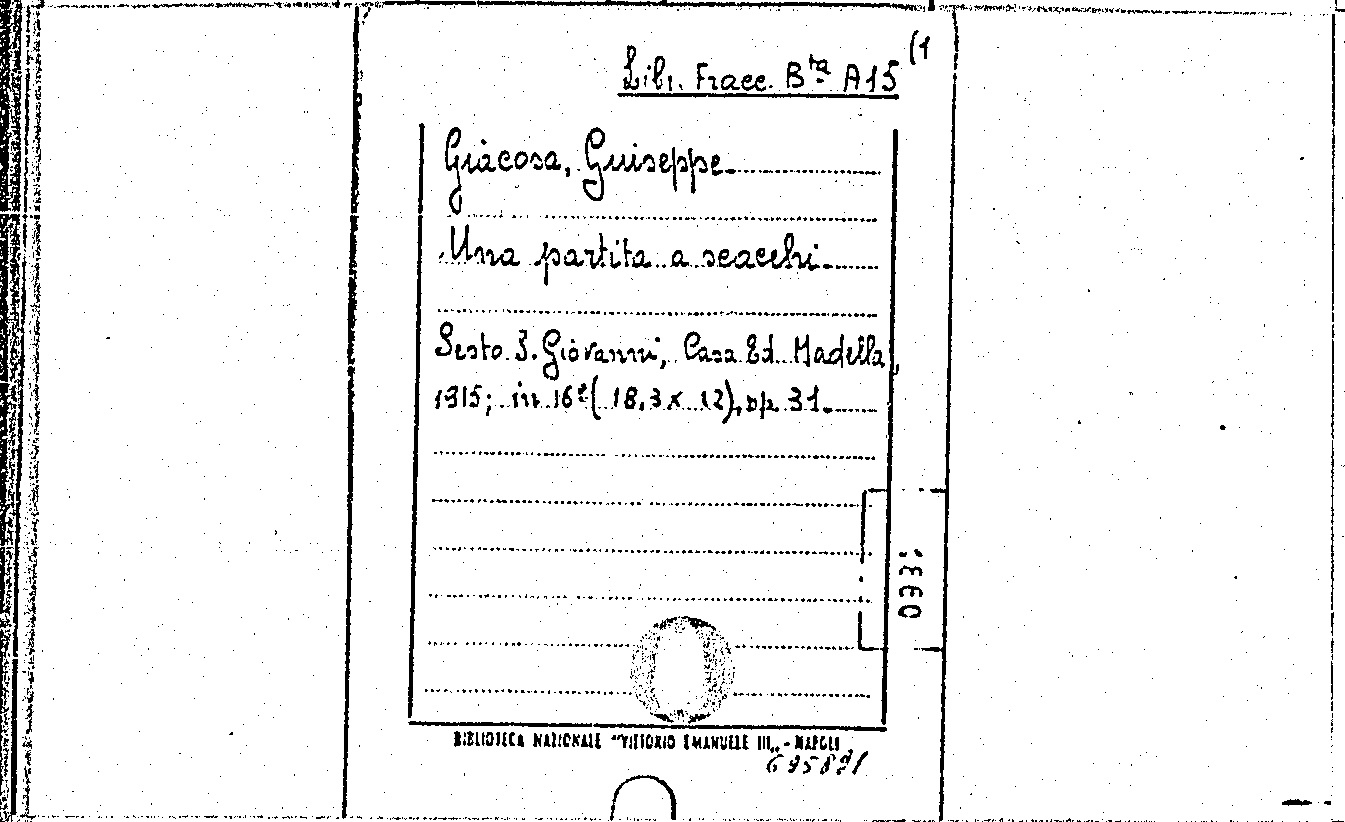 Libr. Fracc. Bta A15 (1
Giacosa, Giuseppe.
Una partita a scacchi.
Sesto S. Giovanni, Casa Ed. Madella,
1915; in 16º (18,3 x 12), pp. 31.
0931
BIBLIOTECA NAZIONALE "VITTORIO EMANUELE III„ - NAPOLI
695891